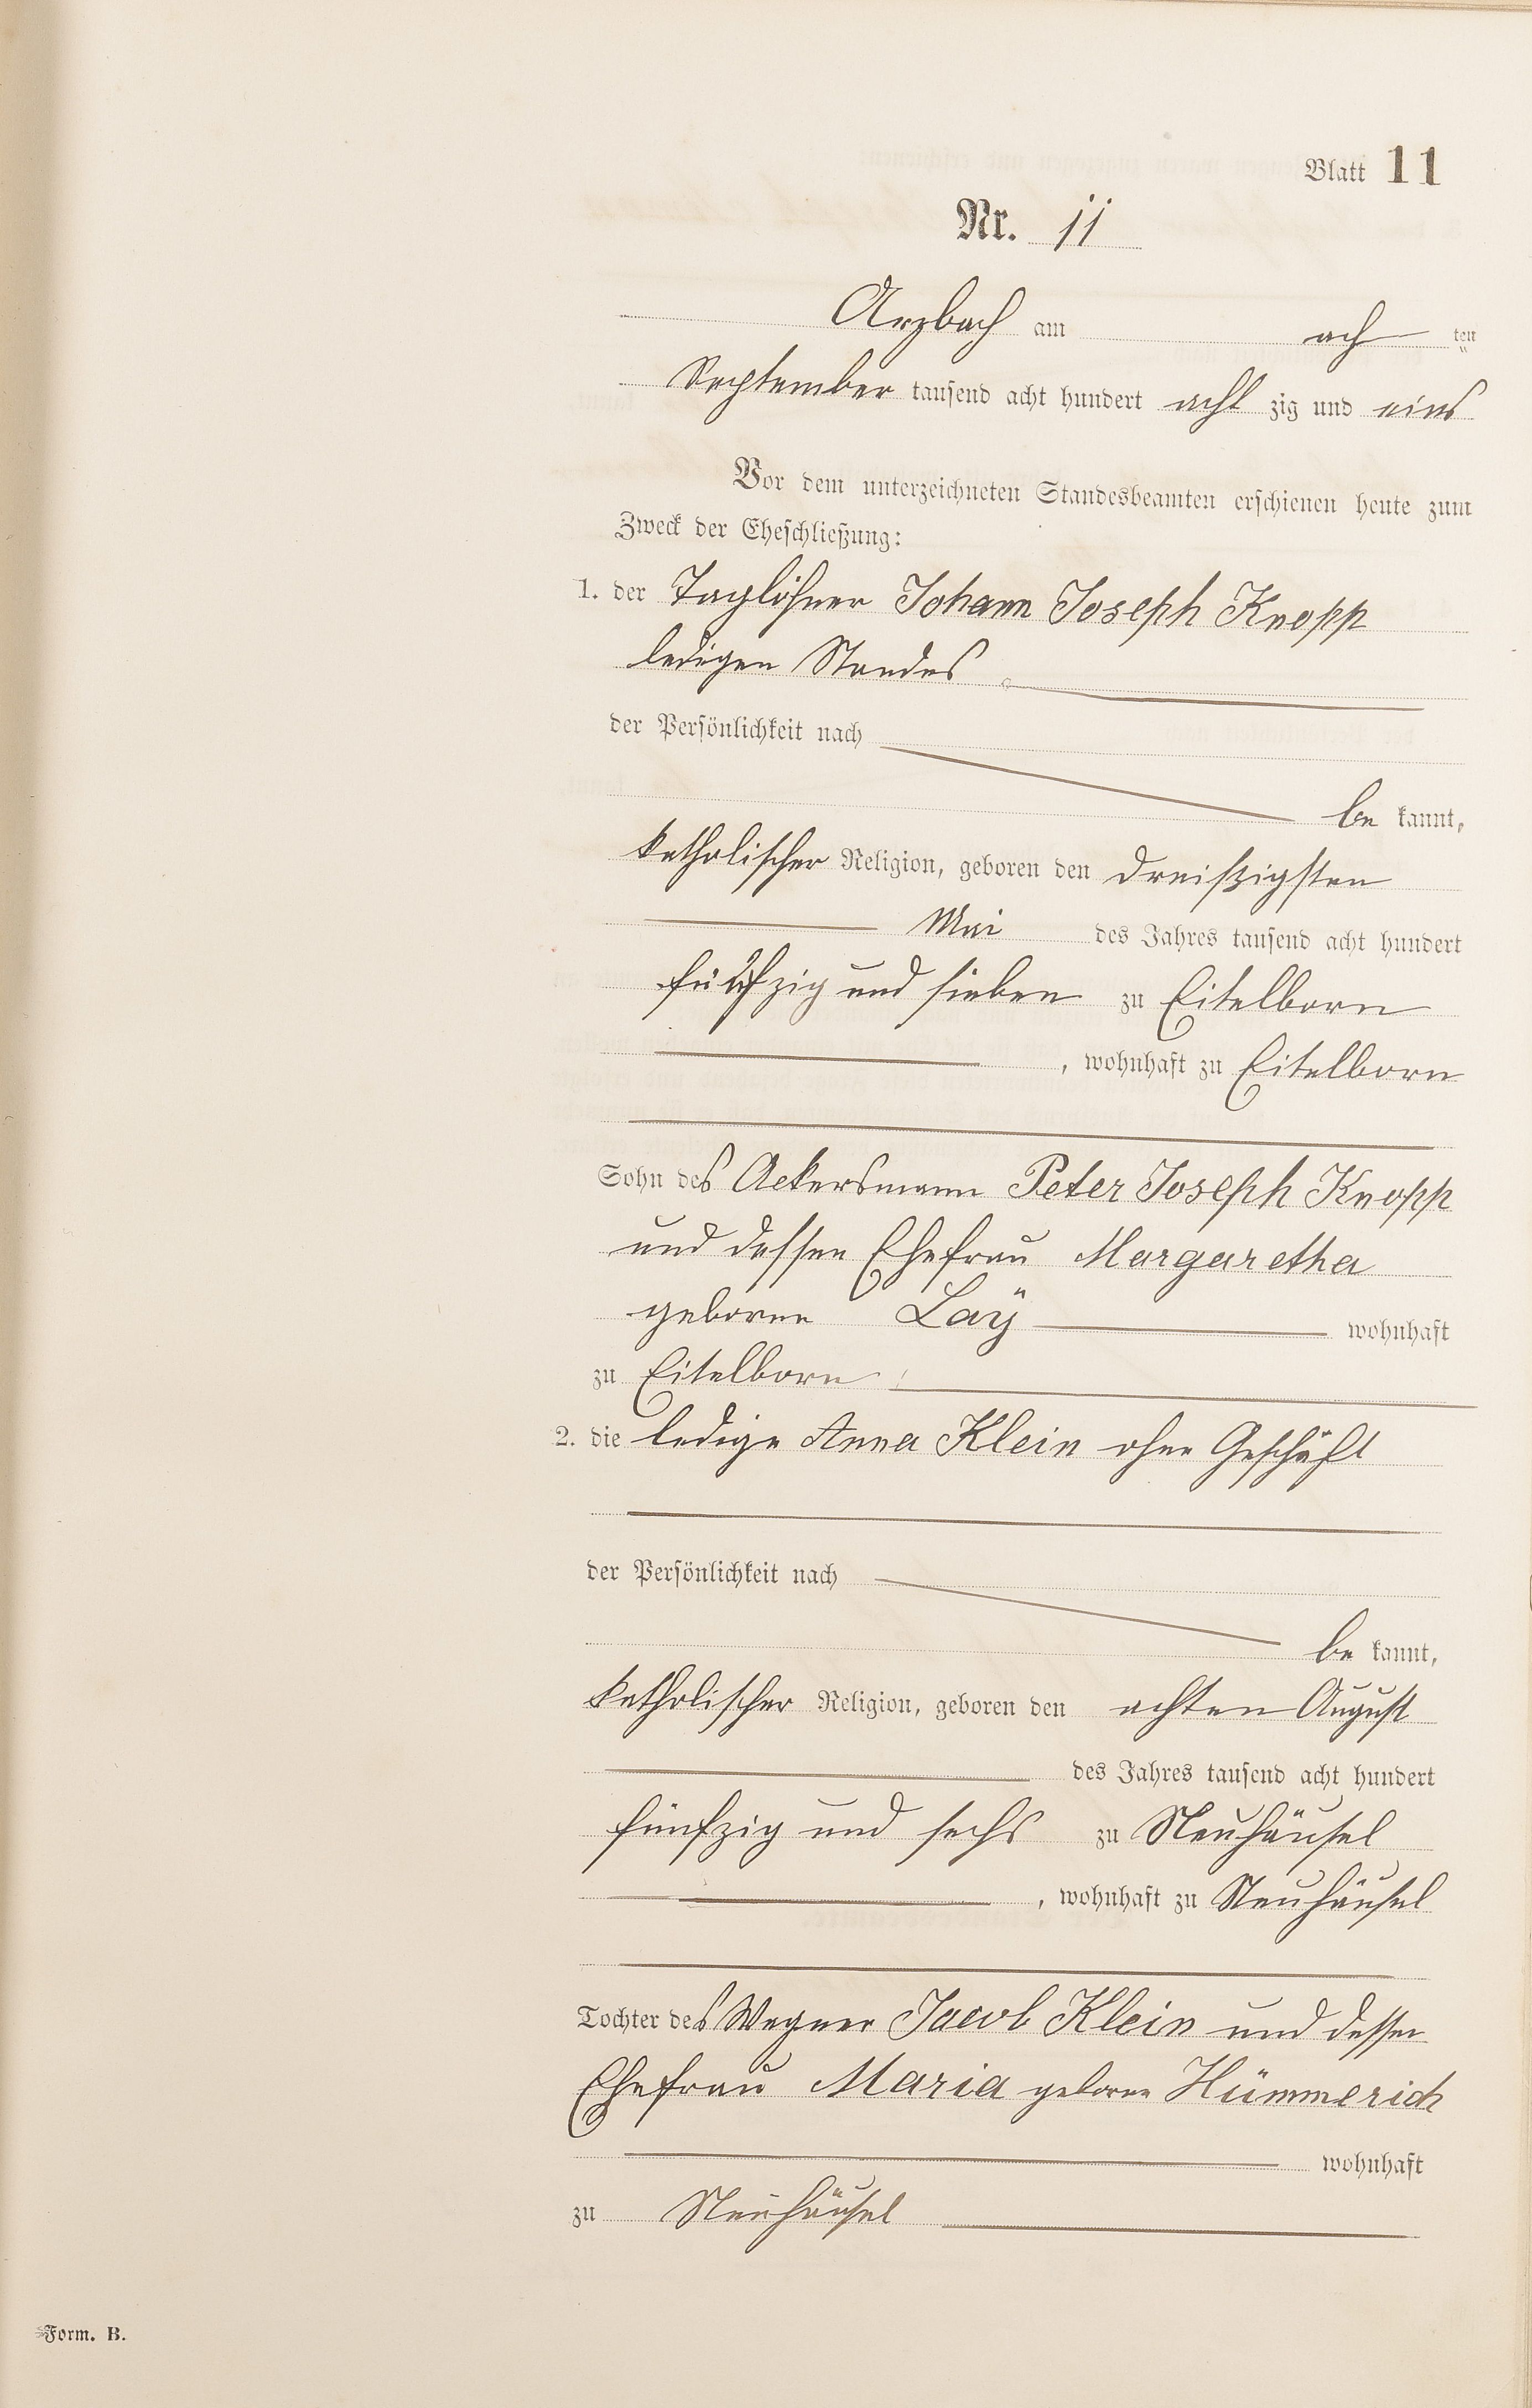 Blatt 11
Nr. 11
Arzbach am ach ten
September tausend acht hundert acht zig und eins
Vor dem unterzeichneten Standesbeamten erschienen heute zum
Zweck der Eheschließung:
1. der Taglöhner Johann Joseph Knopp
ledigen Standes
der Persönlichkeit nach
be kannt,
katholischer Religion, geboren den dreißigsten
Mai des Jahres tausend acht hundert
fünfzig und sieben zu Eitelborn
, wohnhaft zu Eitelborn
Sohn des Ackersmann Peter Joseph Knopp
und dessen Ehefrau Margaretha
geborne Laÿ wohnhaft
zu Eitelborn
2. die ledige Anna Klein ohne Geschäft
der Persönlichkeit nach
be kannt,
katholischer Religion, geboren den achten August
des Jahres tausend acht hundert
fünfzig und sechs zu Neuhäusel
, wohnhaft zu Neuhäusel
Tochter des Wagner Jacob Klein und dessen
Ehefrau Maria geborne Hümmerich
wohnhaft
zu Neuhäusel
Form. B.